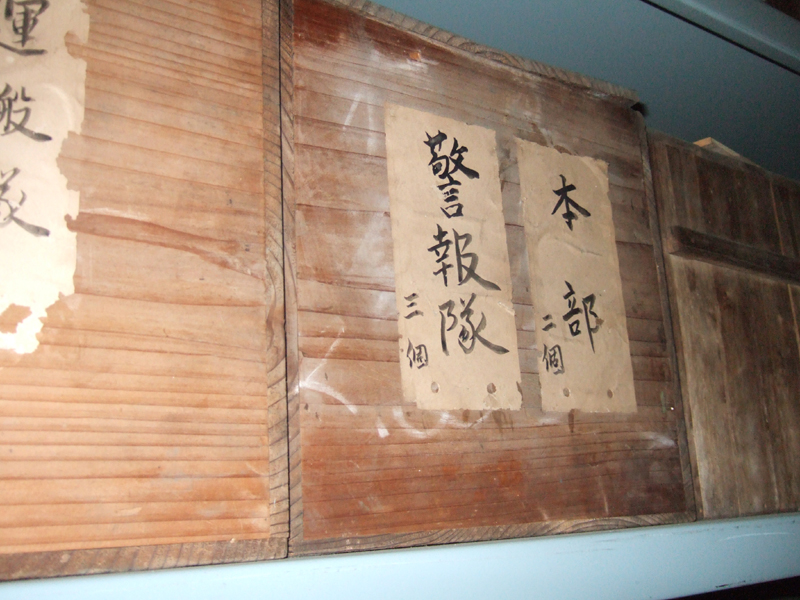 本部
二個
警報隊
三個
運般隊